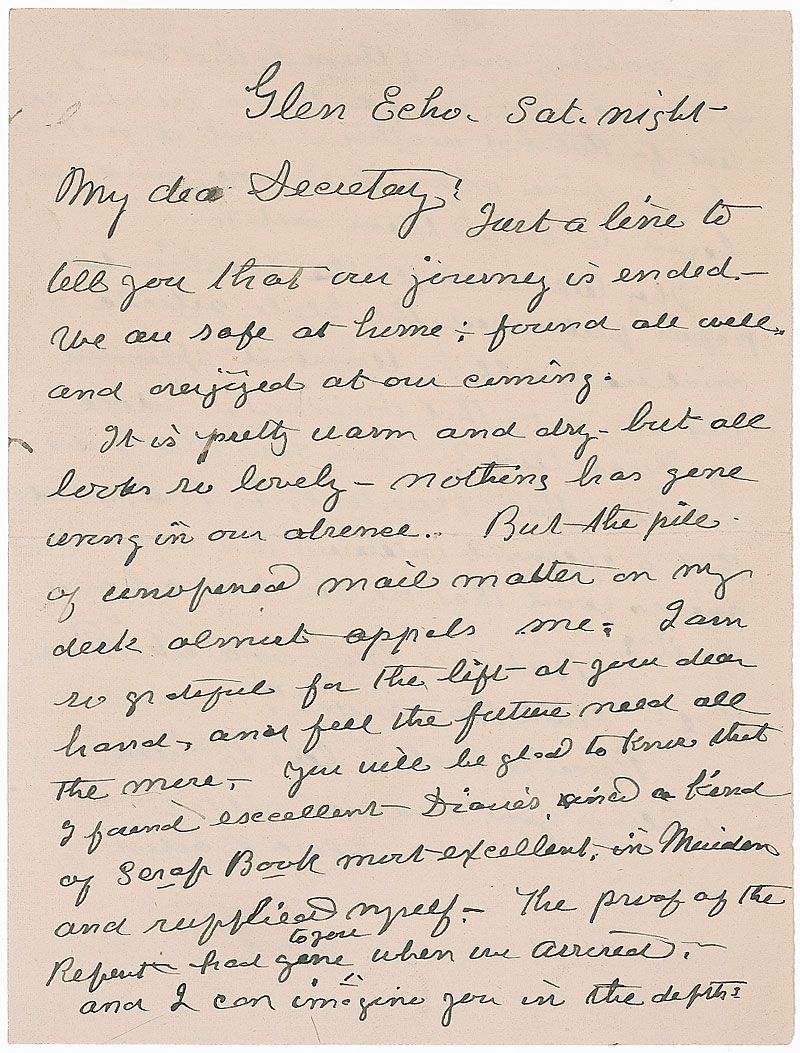 Glen Echo. Sat. night
My dea Secretary!
Just a line to
tell you that our journey is ended.—
We are safe at home; found all well,
and overjoyed at our coming.
It is pretty warm and dry— but all
looks so lovely— nothing has gone
wrong in our absence.. But the pile
of unopened mail matter on my
desk almost appels me; I am
so grateful for the lift at your dear
hand, and feel the future need all
the more,— You will be glad to know that
I found excellent Diaries, and a kind
of Scrap Book most excellent, in Meriden
and supplied myself.— The proof of the
to you
Report had gone when we arrived;—
and I can imagine you in the depths